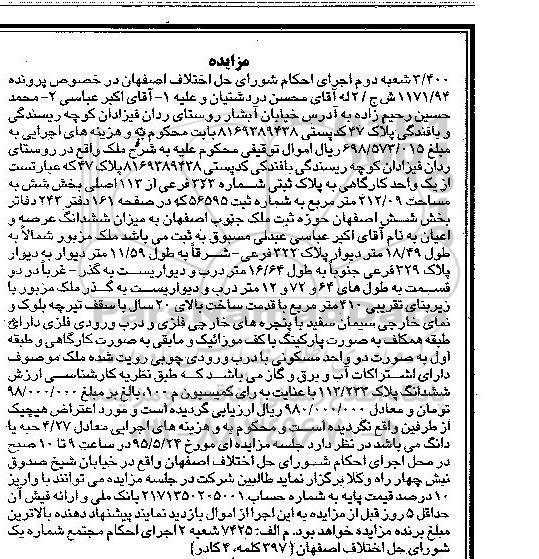 مزایده
۳/۴۰۰ شعبه دوم اجرای احکام شورای حل اختلاف اصفهان در خصوص پرونده
۱۱۷۱/۹۴ ش ج / ۲ له آقای محسن دردشتیان و علیه ۱- آقای اکبر عباسی ۲- محمد
حسین رحیم زاده به آدرس خیابان آبشار روستای ردان فیزادان کوچه ریسندگی
و بافندگی پلاک ۴۷ کدپستی ۸۱۶۹۳۸۹۴۳۸ بابت محکوم به و هزینه های اجرایی به
مبلغ ۶۹۸/۵۷۳/۰۱۵ ریال اموال توقیفی محکوم علیه به شرح ملک واقع در روستای
ردان فیزادان کوچه ریسندگی بافندگی کدپستی ۸۱۶۹۳۸۹۴۳۸ پلاک ۴۷ که عبارتست
از یک واحد کارگاهی به پلاک ثبتی شماره ۳۲۳ فرعی از ۱۱۳ اصلی بخش شش به
مساحت ۲۱۲/۰۹ متر مربع به شماره ثبت ۵۶۵۹۵ که در صفحه ۱۶۱ دفتر ۲۴۳ دفاتر
بخش شش اصفهان حوزه ثبت ملک جنوب اصفهان به میزان ششدانگ عرصه و
اعیان به نام آقای اکبر عباسی عبدلی مسبوق به ثبت می باشد ملک مزبور شمالاً به
طول ۱۸/۴۹ متر دیوار پلاک ۳۲۲ فرعی - شرقاً به طول ۱۱/۵۹ متر دیوار به دیوار
پلاک ۳۲۹ فرعی جنوباً به طول ۱۶/۶۴ متر درب و دیواریست به گذر - غرباً در دو
قسمت به طول های ۶۴ و ۷۲ و ۱۲ متر درب و دیواریست به گذر ملک مزبور با
زیربنای تقریبی ۴۱۰ متر مربع با قدمت ساخت بالای ۲۰ سال با سقف تیرچه بلوک و
نمای خارجی سیمان سفید با پنجره های خارجی فلزی و درب ورودی فلزی دارای
طبقه همکف به صورت پارکینگ با کف موزائیک و مابقی به صورت کارگاهی و طبقه
اول به صورت دو واحد مسکونی با درب ورودی چوبی رویت شده ملک موصوف
دارای اشتراکات آب و برق و گاز می باشد که طبق نظریه کارشناسی ارزش
ششدانگ پلاک ۱۱۳/۲۳۳ با عنایت به رای کمیسیون م ۱۰۰ بالغ بر مبلغ ۹۸/۰۰۰/۰۰۰
تومان و معادل ۹۸۰/۰۰۰/۰۰۰ ریال ارزیابی گردیده است و مورد اعتراض هیچیک
از طرفین واقع نگردیده است و محکوم به و هزینه های اجرایی معادل ۴/۲۷ حبه یا
دانگ می باشد در نظر دارد جلسه مزایده ای مورخ ۹۵/۵/۲۴ در ساعت ۹ تا ۱۰ صبح
در محل اجرای احکام شورای حل اختلاف اصفهان واقع در خیابان شیخ صدوق
نبش چهار راه وکلا برگزار نماید طالبین شرکت در جلسه مزایده می توانند با واریز
۱۰ درصد قیمت پایه به شماره حساب ۲۱۷۱۳۵۰۲۰۵۰۰۱ بانک ملی و ارائه فیش آن
حداقل ۵ روز قبل از مزایده به این اجرا از اموال بازدید نمایند پیشنهاد دهنده بالاترین
مبلغ برنده مزایده خواهد بود. م الف: ۷۴۲۵ شعبه ۲ اجرای احکام مجتمع شماره یک
شورای حل اختلاف اصفهان (۳۹۷ کلمه، ۴ کادر)